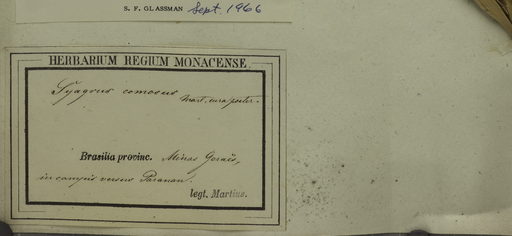 S. F. GLASSMAN Sept. 1966
HERBARIUM REGIUM MONACENSE.
Syagrus comosus Mart. cura poster.
Brasilia provinc. Minas Geraës,
in campis versus Paranan.
legt. Martius.